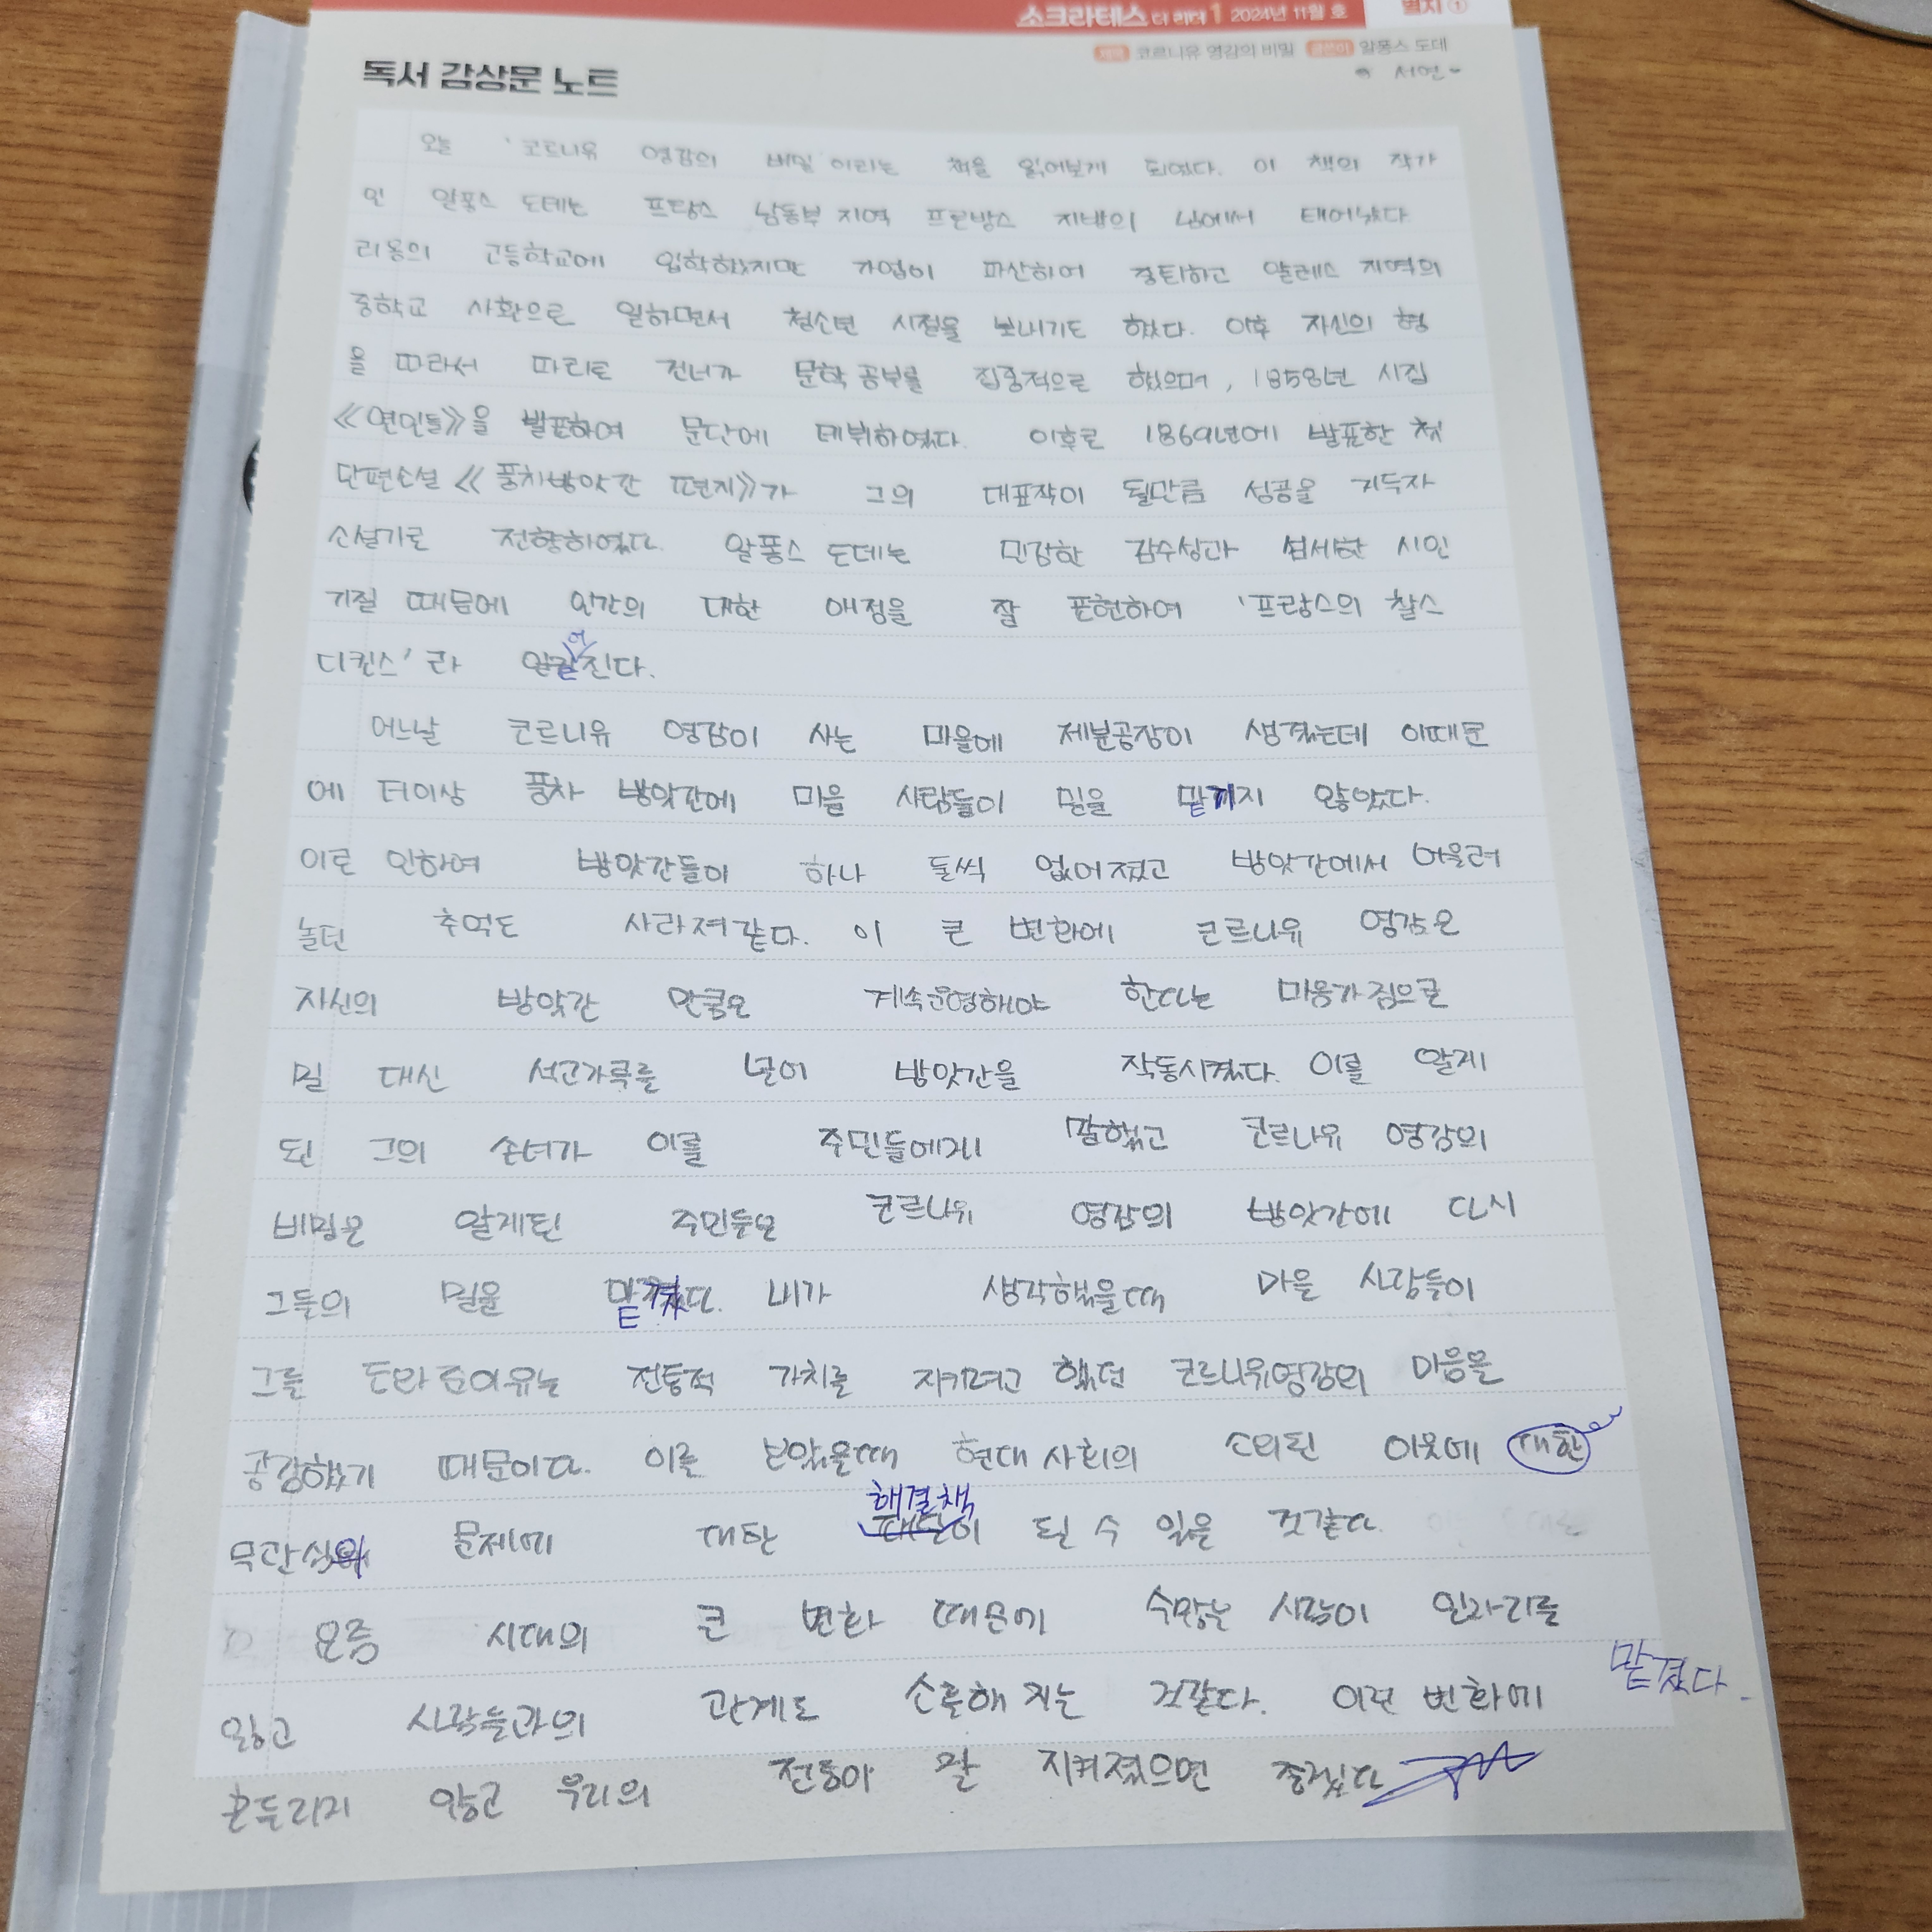 소크라테스 더 리더 1 2024년 11월 호 별지 ①
코르니유 영감의 비밀 글쓴이 알퐁스 도데
서연
독서 감상문 노트
오늘 '코르니유 영감의 비밀'이라는 책을 읽어보게 되었다. 이 책의 작가
인 알퐁스 도데는 프랑스 남동부 지역 프로방스 지방의 님에서 태어났다
리옹의 고등학교에 입학하였지만 가업이 파산하여 중퇴하고 알레스 지역의
중학교 사환으로 일하면서 청소년 시절을 보내기도 했다. 이후 자신의 형
을 따라서 파리로 건너가 문학 공부를 집중적으로 했으며, 1858년 시집
《연인들》을 발표하여 문단에 데뷔하였다. 이후로 1869년에 발표한 첫
단편소설 《풍차방앗간 편지》가 그의 대표작이 될만큼 성공을 거두자
소설가로 전향하였다. 알퐁스 도데는 민감한 감수성과 섬세한 시인
기질 때문에 인간의 대한 애정을 잘 표현하여 '프랑스의 찰스
어
디킨스'라 알려진다.
어느날 코르니유 영감이 사는 마을에 제분공장이 생겼는데 이때문
에 더이상 풍차 방앗간에 마을 사람들이 밀을 맡기지 않았다.
이로 인하여 방앗간들이 하나 둘씩 없어졌고 방앗간에서 어울려
놀던 추억도 사라져갔다. 이 큰 변화에 코르니유 영감은
자신의 방앗간 만큼은 계속운영해야 한다는 마음가짐으로
밀 대신 석고가루를 넣어 방앗간을 작동시켰다. 이를 알게
된 그의 손녀가 이를 주민들에게 말했고 코르니유 영감의
비밀은 알게된 주민들은 코르니유 영감의 방앗간에 다시
그들의 밀을 맡겼다. 내가 생각했을때 마을 사람들이
그를 도와준이유는 전통적 가치를 지키려고 했던 코르니유영감의 마음을
공감했기 때문이다. 이를 보았을때 현대 사회의 소외된 이웃에 대한
해결책
무관심 문제에 대한 이 될 수 있을 것같다.
요즘 시대의 큰 변화 때문에 수많은 사람이 일자리를
맡겼다.
잃고 사람들과의 관계도 소홀해 지는 것같다. 이런 변화에
흔들리지 않고 우리의 전통이 잘 지켜졌으면 좋겠다